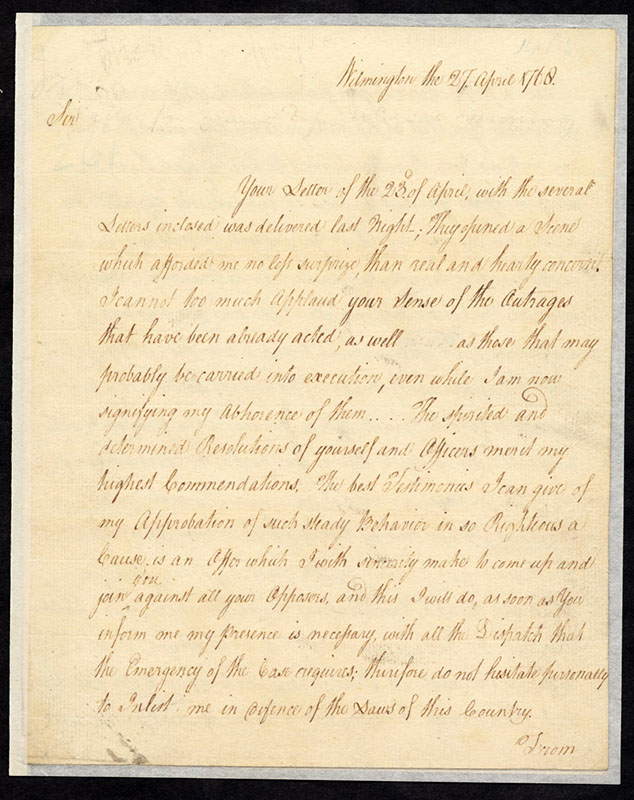 Wilmington the 27. April 1768.
Sir
Your Letter of the 23d. of April, with the several
Letters inclosed was delivered last Night; They opened a Scene
which afforded me no less surprize, than real and hearty concern.
I cannot too much Applaud your Sense of the Outrages
that have been already acted, as well as those that may
probably be carried into execution, even while I am now
signifying my Abhorence of them.... The spirited and
determined Resolutions of yourself and Officers merit my
highest Commendations. The best Testimonies I can give of
my Approbation of such steady Behavior in so Rightious a
Cause, is an Offer which I with sincerity make to come up and
join you against all your Opposers, and this I will do, as soon as You
inform me my presence is necessary, with all the Dispatch that
the Emergency of the Case requires; therefore do not hesitate personally
to Inlist me in Defence of the Laws of this Country.
From